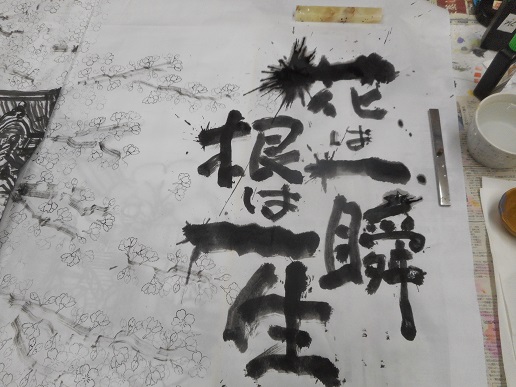 花は一瞬
根は一生